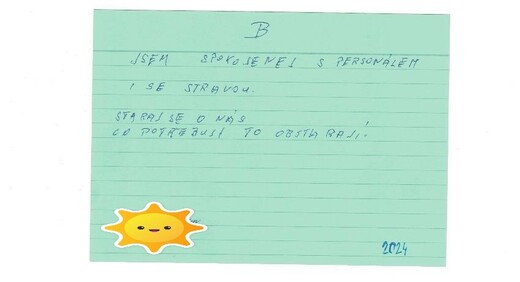 B
JSEM SPOKOJENEJ S PERSONÁLEM
I SE STRAVOU.
STARAJ SE O NÁS
CO POTŘEBUJI TO OBSTARAJÍ.
2024